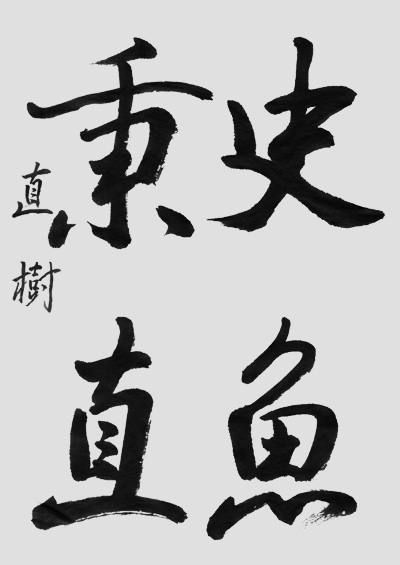 史魚
秉直
直樹